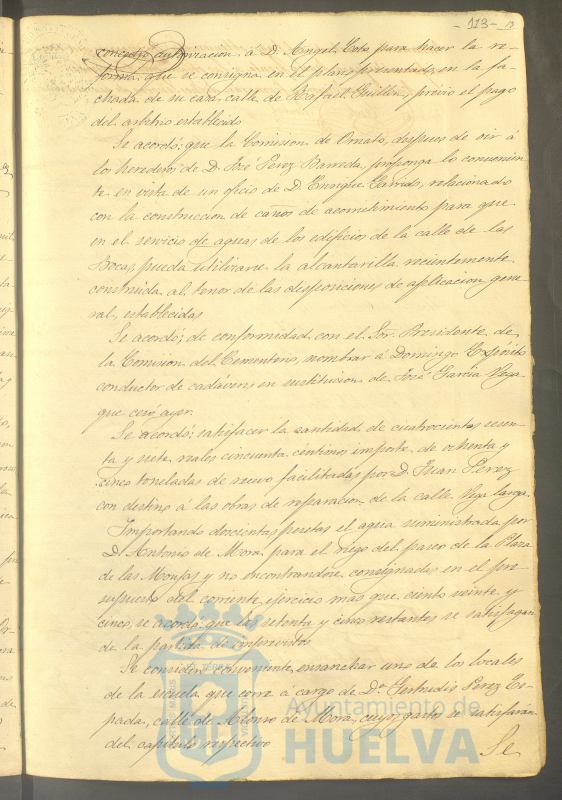 - 113 -
concedió autorizacion á D. Angel Cobo para hacer la re-
forma que se consigna en el plano presentado, en la fa-
chada de su casa calle de Rafael Guillen, prévio el pago
del arbitrio establecido
Se acordó: que la Comision de Ornato, despues de oir á
los herederos de D. José Perez Barreda, proponga lo convenien-
te en vista de un oficio de D. Enrique Garrido, relacionado
con la construccion de caños de acometimiento para que
en el servicio de aguas de los edificios de la calle de las
Bocas, pueda utilizarse la alcantarilla recientemente
construida al tenor de las disposiciones de aplicacion gene-
ral, establecidas
Se acordó; de conformidad con el Sor. Presidente de
la Comision del Cementerio, nombrar á Domingo Expósito
conductor de cadáveres en sustitucion de José García Vega
que cesó ayer.
Se acordó: satisfacer la cantidad de cuatrocientos sesen-
ta y siete reales cincuenta céntimos importe de ochenta y
cinco toneladas de facilitadas por D. Juan Perez
con destino á las obras de reparacion de la calle Vega larga.
Importando doscientas pesetas el agua suministrada por
D. Antonio de Mora para el riego del paseo de la Plaza
de las Monjas y no encontrandose consignadas en el pre-
supuesto del corriente ejercicio mas que ciento veinte y
cinco, se acordó: que las setenta y cinco restantes se satisfagan
de la partida de imprevistos
Se consideró conveniente ensanchar uno de los locales
de la escuela que corre á cargo de Da. Gertrudis Perez Es-
pada, calle de Alonso de Mora, cuyos gastos se satisfarán
del capitulo respectivo
Se
Ayuntamiento de
HUELVA